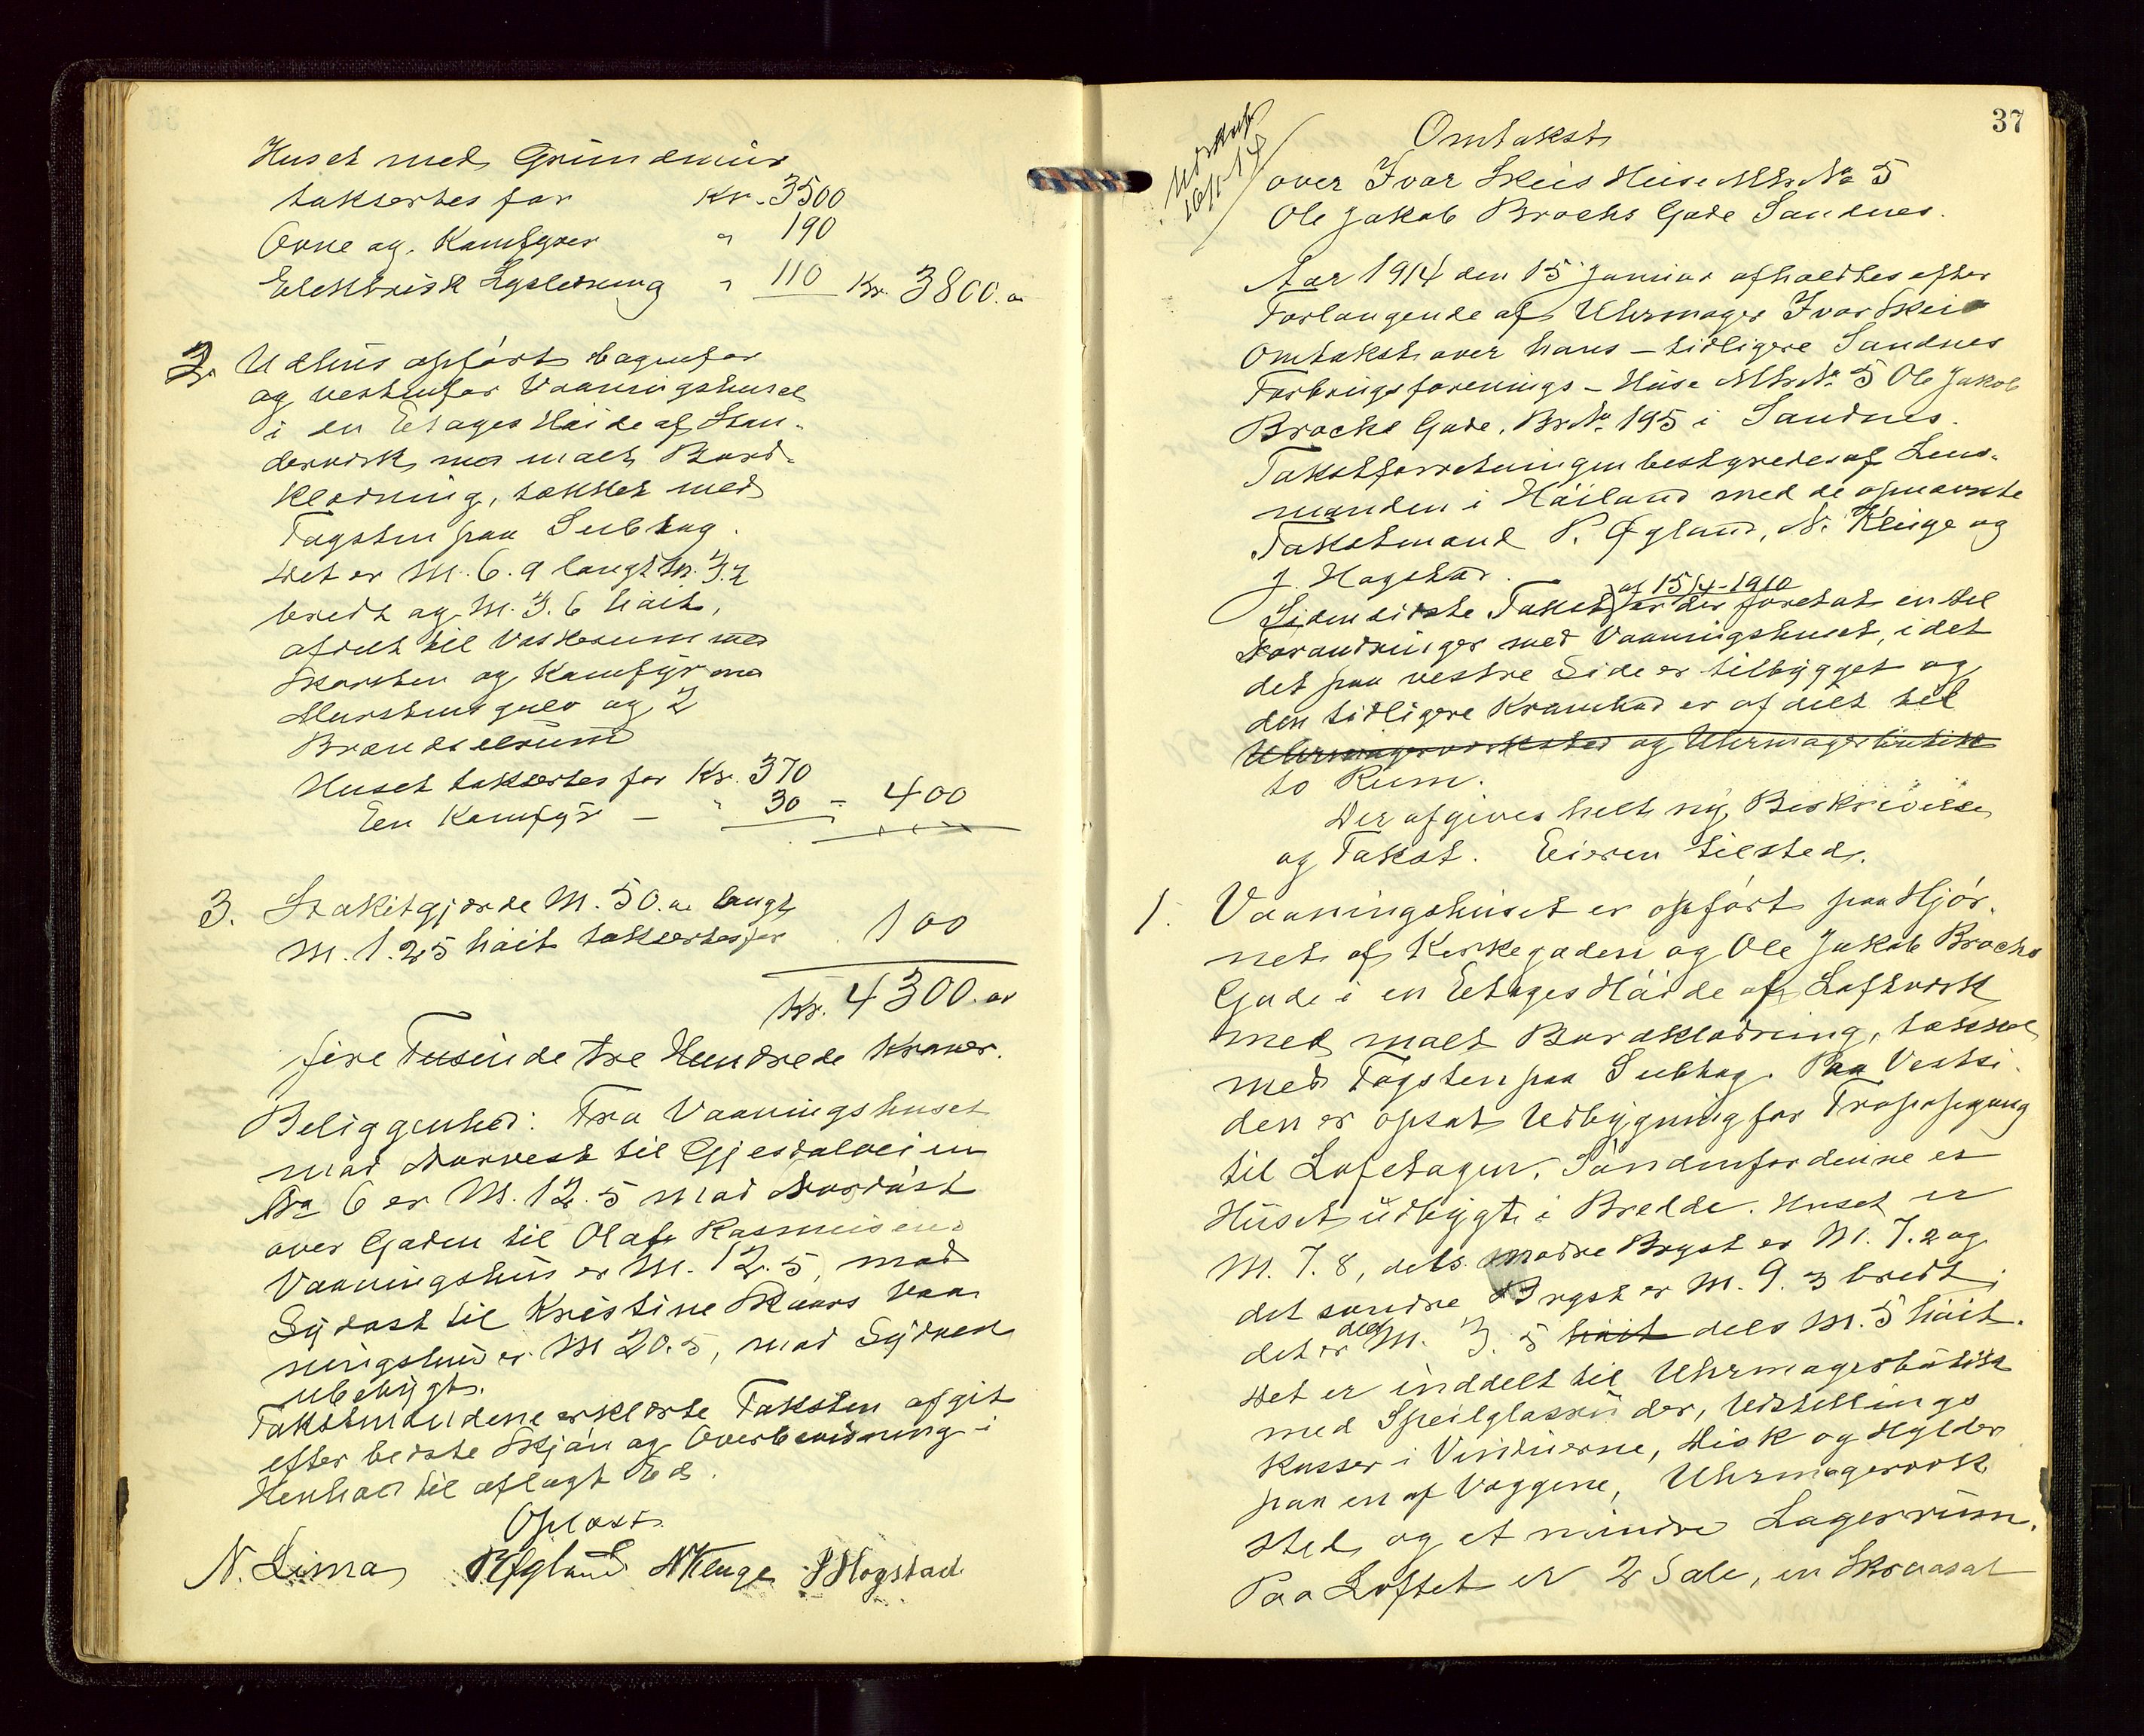 Huset med Grundmur
taksertes for Kr. 3500
Ovne og Komfyrer " 190
Elektrisk Lysledning " 110 Kr. 3800.00
2. Udhus opført bagenfor
og vestenfor Vaaningshuset
i en Etages Høide af Sten-
derverk med malt Bord-
klædning, tækket med
Tagsten paa Subtag.
Det er M. 6.9 langt M. 3.2
bredt og M. 3.6 høit,
afdelt til Vaskerum med
Skorsten og Komfyr med
Murstensgulv og 2
Brændselrum
Huset taksertes for Kr. 370
En Komfyr — " 30 - 400
3. Stakitgjærde M. 50.00 langt
M. 1.25 høit taksertes for 100
Kr. 4300.00
fire Tusinde tre Hundrede Kroner.
Beliggenhed: Fra Vaaningshuset
mod Norvest til Gjesdalveien
No 6 er M. 12.5 mod Nordøst
over Gaden til Olaf Rasmusens
Vaaningshus er M. 12.5, mod
Sydøst til Kristine Skaars Vaa
ningshus er M 20.5, mod Sydvest
ubebygt.
Takstmændene erklærte Taksten afgit
efter bedste Skjøn og Overbevisning i
Henhold til aflagt Ed.
Oplæst.
N. Lima P Øgland N Kluge J Hogstad
37
16/1-14
Omtakst
over Ivar Skeis Huse Mtr. No 5
Ole Jakob Brochs Gade Sandnes.
Aar 1914 den 15 Januar afholdtes efter
Forlangende af Uhrmager Ivar Skeie
Omtakst over hans – tidligere Sandnes
Forbrugsforenings – Huse Mtr. No 5 Ole Jakob
Brochs Gade, Br. No 195 i Sandnes.
Takstforretningen bestyredes af Lens-
manden i Høiland med de opnævnte
Takstmænd P. Øgland, N. Kluge og
J. Hogstad.
Siden sidste Takst af 15/4-1910 er der foretat en Del
Forandringer med Vaaningshuset, idet
det paa vestre Side er tilbygget og
den tidligere Krambod er afdelt til
Uhrmagerverksted og Uhrmagerbutik
to Rum.
Der afgives helt ny Beskrivelse
og Takst. Eieren tilsted.
1. Vaaningshuset er opført paa Hjør-
net af Kirkegaden og Ole Jakob Brochs
Gade i en Etages Høide af Loftverk
med malt Bordklædning, tækket
med Tagsten paa Subtag. Paa Vestsi-
den er opsat Udbygning for Trappegang
til Loftetagen. Søndenfor denne er
Huset udbygt i Bredde. Huset er
M. 7.8, dets nordre Bryst er M. 7.2 og
det søndre Bryst er M. 9.3 bredt,
det er dels M. 3.5 høit dels M. 5 høit.
Det er inddelt til Uhrmagerbutik
med Speilglasruder, Udstillings
kasser i Vinduerne, Disk og Hylder
paa en af Væggene, Uhrmagerverk
sted og et mindre Lagerrum.
Paa Loftet er 2 Sale, en Skraasal